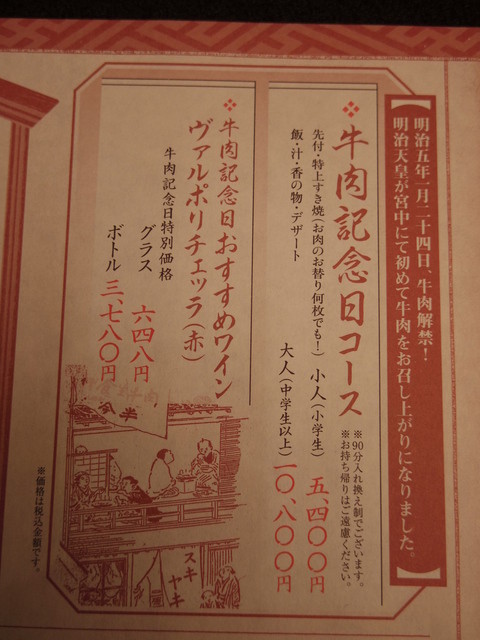 明治五年一月二十四日、牛肉解禁！
明治天皇が宮中にて初めて牛肉をお召し上がりになりました。
牛肉記念日コース
※90分入れ換え制でございます。
※お持ち帰りはご遠慮ください。
先付・特上すき焼(お肉のお替り何枚でも！)
飯・汁・香の物・デザート
小人(小学生) 五、四〇〇円
大人(中学生以上) 一〇、八〇〇円
牛肉記念日おすすめワイン
ヴァルポリチェッラ(赤)
牛肉記念日特別価格
グラス 六四八円
ボトル 三、七八〇円
スキ
ヤキ
※価格は税込金額です。